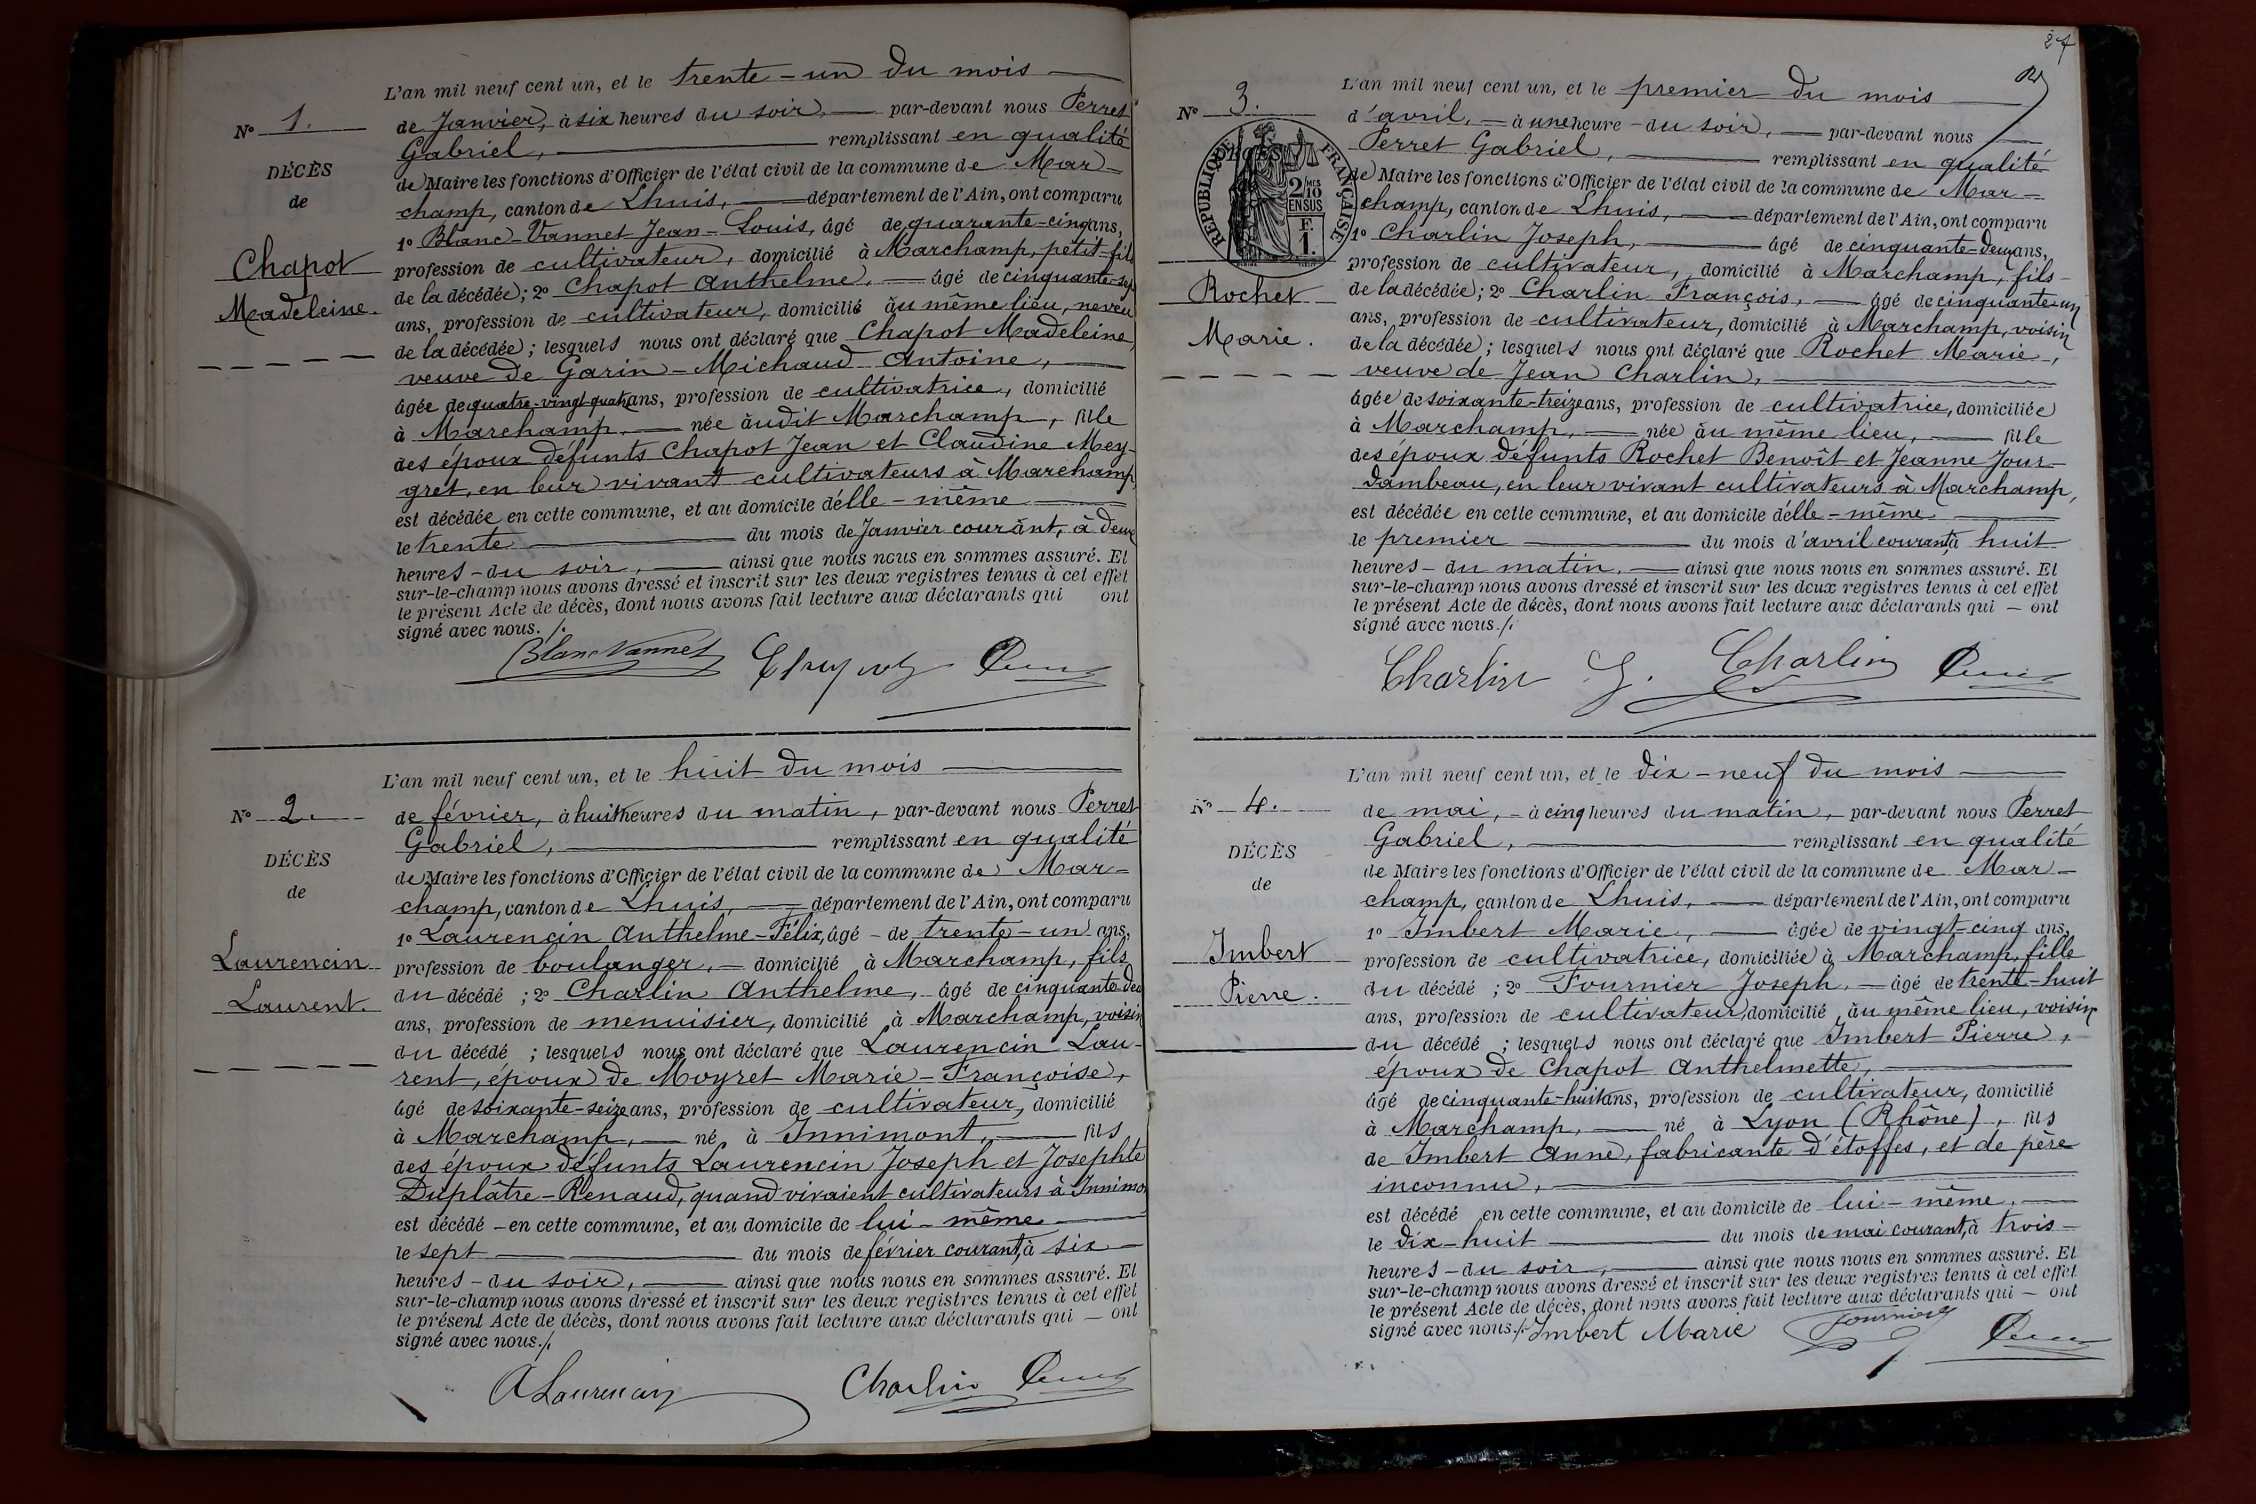 L'an mil neuf cent un, et le trente-un du mois
N° 1.
de Janvier, à six heures du soir, par-devant nous Perret
Gabriel, remplissant en qualité
DÉCÈS
de Maire les fonctions d'Officier de l'état civil de la commune de Mar-
de
champ, canton de Lhuis, département de l'Ain, ont comparu
1° Blanc-Vannet Jean-Louis, âgé de quarante-cinq ans,
Chapot
profession de cultivateur, domicilié à Marchamp, petit-fils
de la décédée; 2° Chapot Anthelme, âgé de cinquante-sept
Madeleine.
ans, profession de cultivateur, domicilié au même lieu, neveu
de la décédée; lesquels nous ont déclaré que Chapot Madeleine,
veuve de Garin-Michaud Antoine,
âgée de quatre-vingt quatre ans, profession de cultivatrice, domicilié
à Marchamp, née audit Marchamp, fille
des époux défunts Chapot Jean et Claudine Mey-
gret, en leur vivant cultivateurs à Marchamp
est décédée en cette commune, et au domicile d'elle-même
le trente du mois de Janvier courant, à deux
heures du soir, ainsi que nous nous en sommes assuré. Et
sur-le-champ nous avons dressé et inscrit sur les deux registres tenus à cet effet
le présent Acte de décès, dont nous avons fait lecture aux déclarants qui ont
signé avec nous./.
Blanc Vannet Chapot Perret
L'an mil neuf cent un, et le huit du mois
N° 2.
de février, à huit heures du matin, par-devant nous Perret
Gabriel, remplissant en qualité
DÉCÈS
de Maire les fonctions d'Officier de l'état civil de la commune de Mar-
de
champ, canton de Lhuis, département de l'Ain, ont comparu
1° Laurencin Anthelme-Félix, âgé de trente-un ans,
Laurencin
profession de boulanger, domicilié à Marchamp, fils
du décédé; 2° Charlin Anthelme, âgé de cinquante-deux
Laurent.
ans, profession de menuisier, domicilié à Marchamp, voisin
du décédé; lesquels nous ont déclaré que Laurencin Lau-
rent, époux de Moyret Marie-Françoise,
âgé de soixante-seize ans, profession de cultivateur, domicilié
à Marchamp, né à Innimont, fils
des époux défunts Laurencin Joseph et Josephte
Duplâtre-Renaud, quand vivaient cultivateurs à Innimo
est décédé en cette commune, et au domicile de lui-même
le sept du mois de février courant, à six
heures du soir, ainsi que nous nous en sommes assuré. Et
sur-le-champ nous avons dressé et inscrit sur les deux registres tenus à cet effet
le présent Acte de décès, dont nous avons fait lecture aux déclarants qui ont
signé avec nous./.
A Laurencin Charlin Perret
27
L'an mil neuf cent un, et le premier du mois
N° 3.
d'avril, à une heure du soir, par-devant nous
Perret Gabriel, remplissant en qualité
RÉPUBLIQUE FRANÇAISE
2/10 MES EN SUS
F. 1.
de Maire les fonctions d'Officier de l'état civil de la commune de Mar-
champ, canton de Lhuis, département de l'Ain, ont comparu
1° Charlin Joseph, âgé de cinquante-deux ans,
profession de cultivateur, domicilié à Marchamp, fils
Rochet
de la décédée; 2° Charlin François, âgé de cinquante-un
ans, profession de cultivateur, domicilié à Marchamp, voisin
Marie.
de la décédée; lesquels nous ont déclaré que Rochet Marie,
veuve de Jean Charlin,
âgée de soixante-treize ans, profession de cultivatrice, domiciliée
à Marchamp, née au même lieu, fille
des époux défunts Rochet Benoît et Jeanne Jour-
dambeau, en leur vivant cultivateurs à Marchamp,
est décédée en cette commune, et au domicile d'elle-même
le premier du mois d'avril courant, à huit
heures du matin, ainsi que nous nous en sommes assuré. Et
sur-le-champ nous avons dressé et inscrit sur les deux registres tenus à cet effet
le présent Acte de décès, dont nous avons fait lecture aux déclarants qui ont
signé avec nous./.
Charlin J. Charlin Perret
L'an mil neuf cent un, et le dix-neuf du mois
N° 4.
de mai, à cinq heures du matin, par-devant nous Perret
Gabriel, remplissant en qualité
DÉCÈS
de Maire les fonctions d'Officier de l'état civil de la commune de Mar-
de
champ, canton de Lhuis, département de l'Ain, ont comparu
1° Imbert Marie, âgée de vingt-cinq ans,
Imbert
profession de cultivatrice, domiciliée à Marchamp, fille
du décédé; 2° Fournier Joseph, âgé de trente-huit
Pierre.
ans, profession de cultivateur, domicilié au même lieu, voisin
du décédé; lesquels nous ont déclaré que Imbert Pierre,
époux de Chapot Anthelmette,
âgé de cinquante-huit ans, profession de cultivateur, domicilié
à Marchamp, né à Lyon (Rhône), fils
de Imbert Anne, fabricante d'étoffes, et de père
inconnu,
est décédé en cette commune, et au domicile de lui-même,
le dix-huit du mois de mai courant, à trois
heures du soir, ainsi que nous nous en sommes assuré. Et
sur-le-champ nous avons dressé et inscrit sur les deux registres tenus à cet effet
le présent Acte de décès, dont nous avons fait lecture aux déclarants qui ont
signé avec nous./. Imbert Marie Fournier Perret